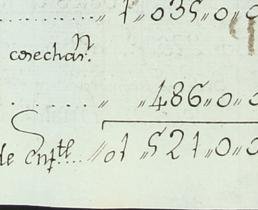 .......... „ 1„035„0„0
cosechar.ⁿ
........ „ „486„0„0
de enf.tte.. „01„521„0„0